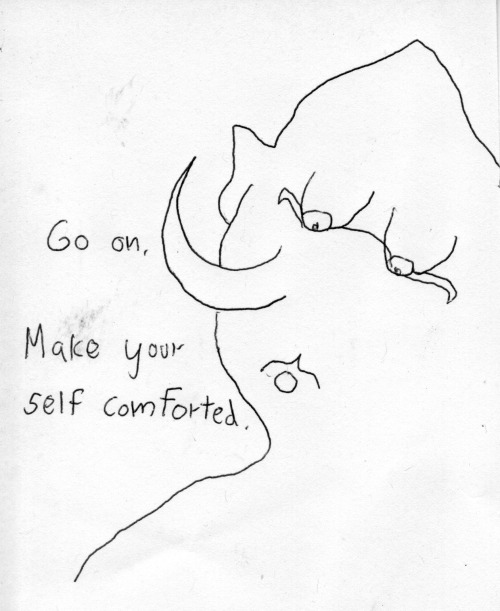 Go on,
Make your
self comforted.